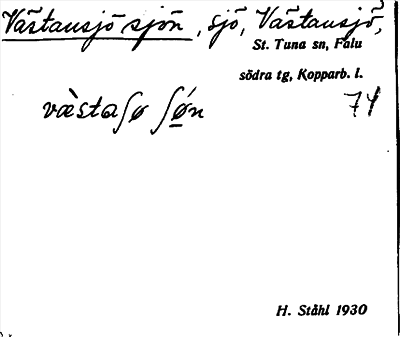 Västansjö sjön, sjö, Västansjö,
St. Tuna sn, Falu
södra tg, Kopparb. l.
væ̀staʃø ʃǿ̱n 74
H. Ståhl 1930